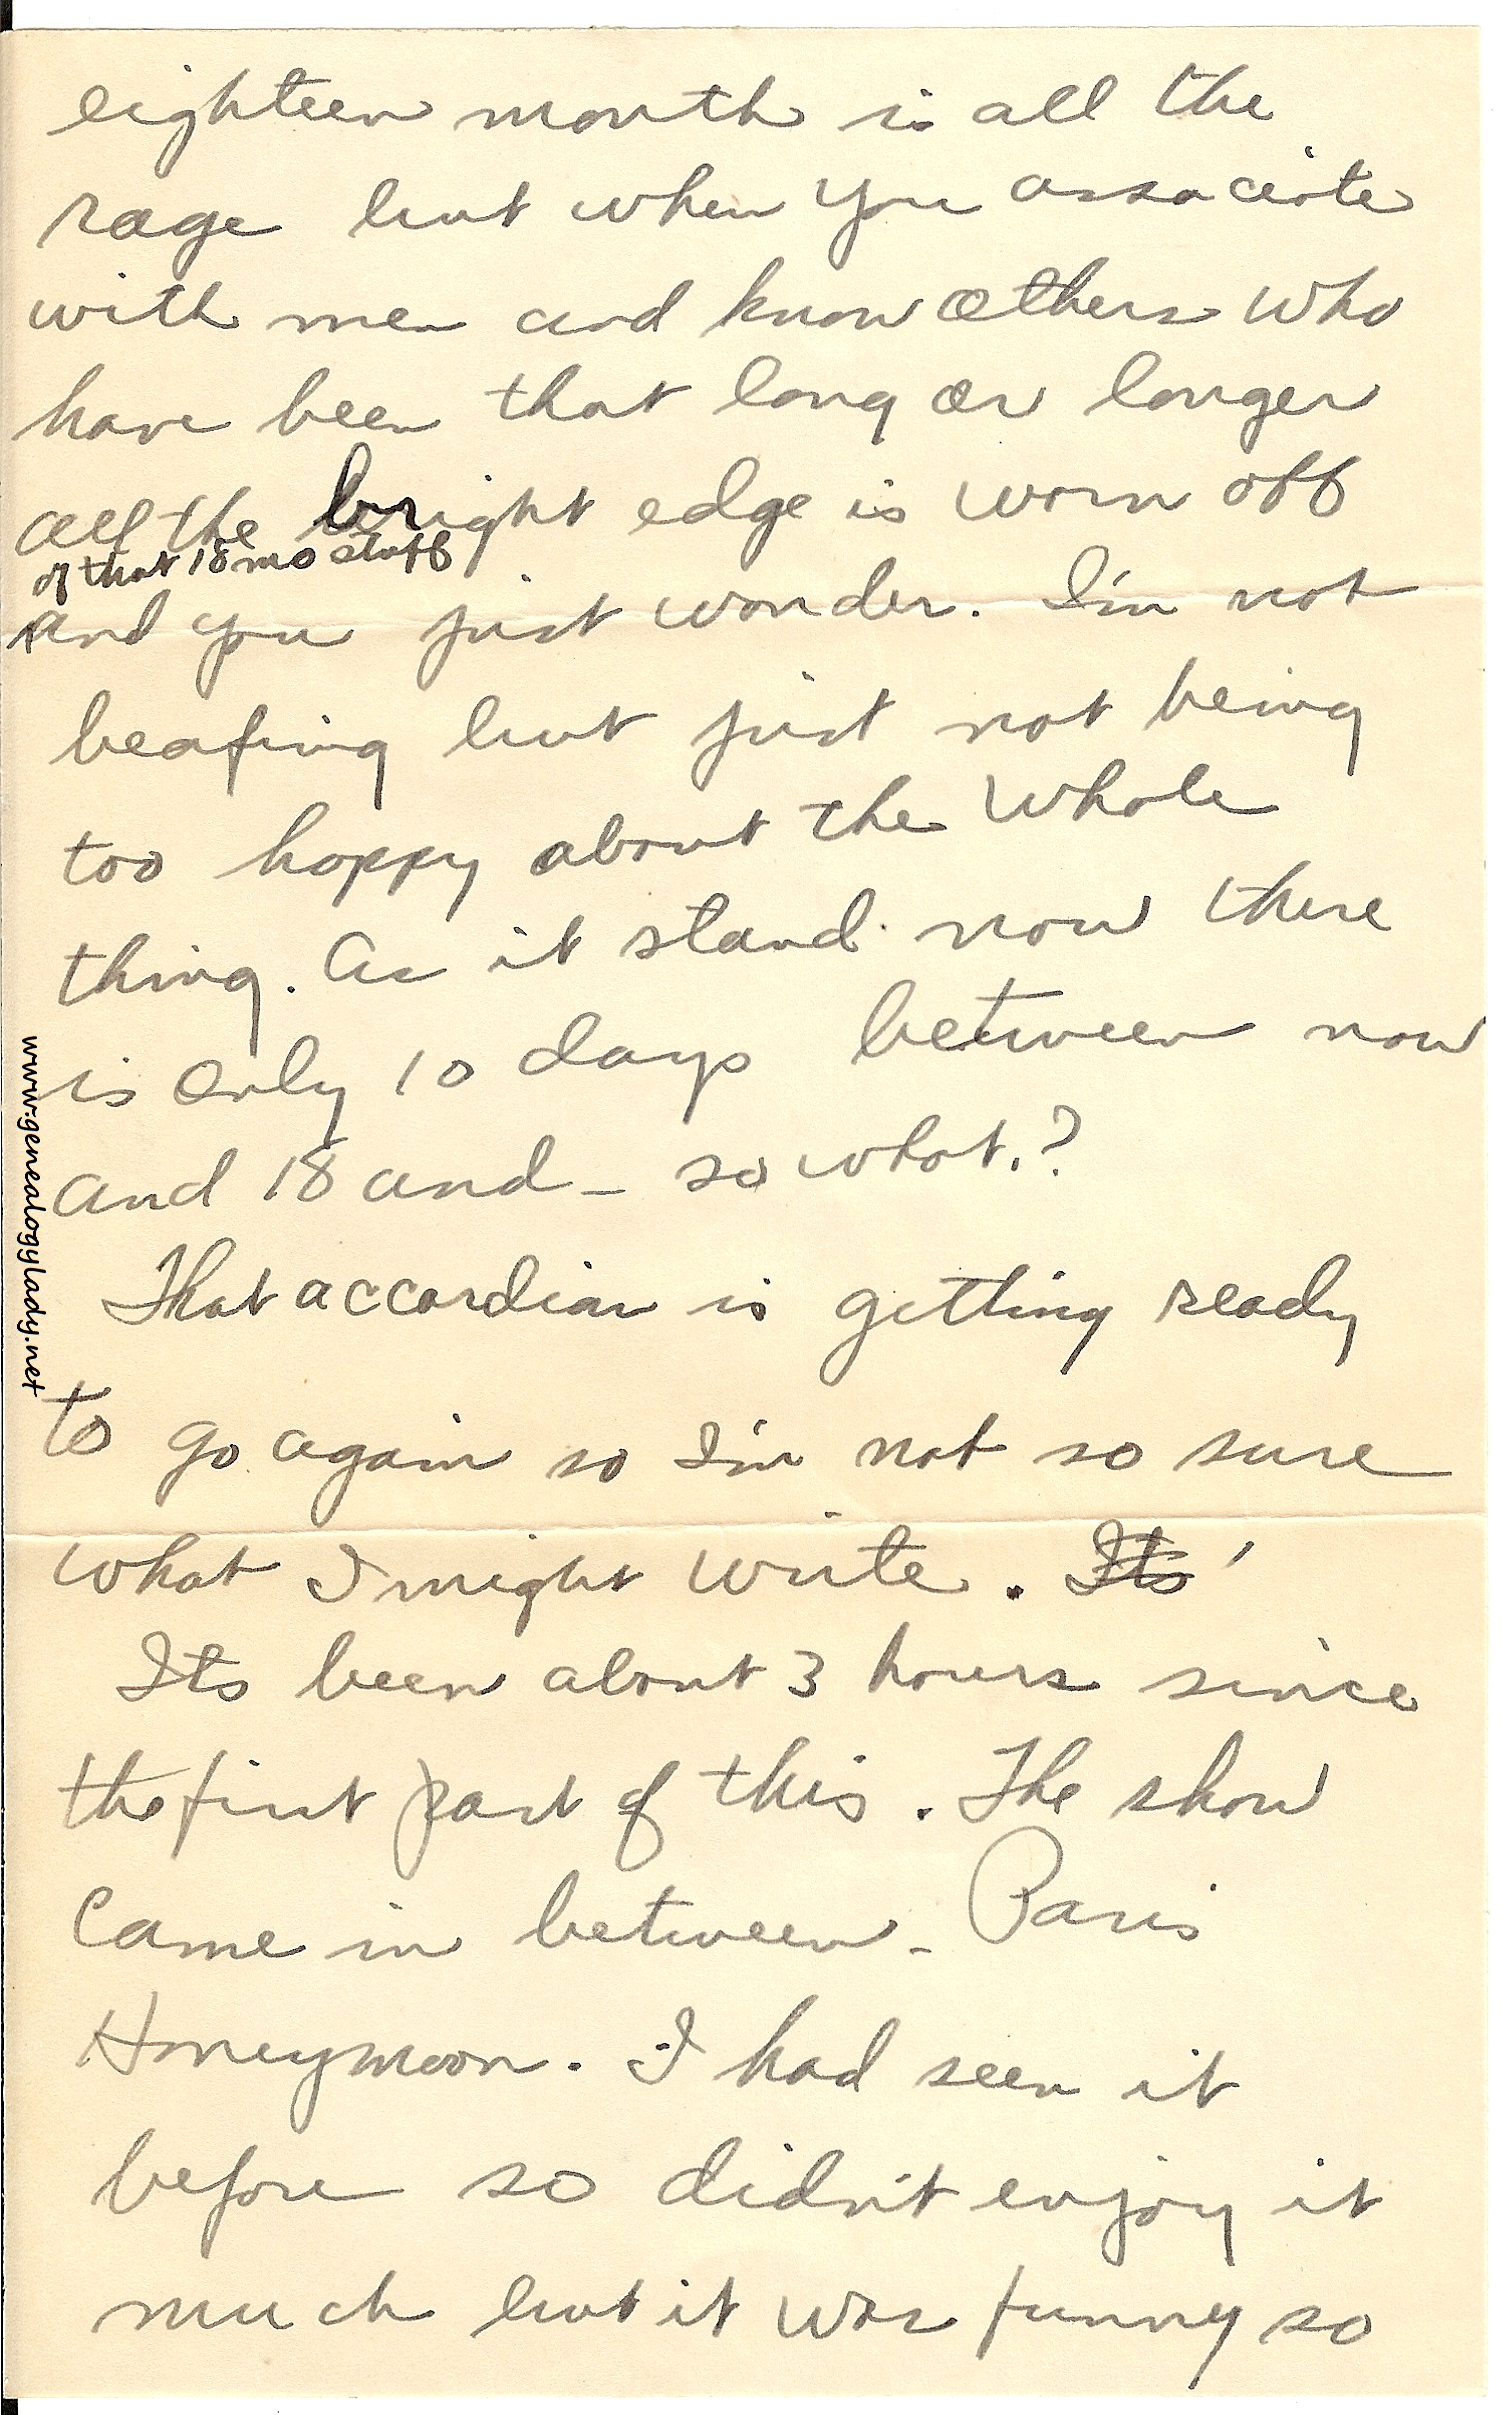 eighteen month is all the
rage but when you associate
with men and know others who
have been that long or longer
all the bright edge is worn off
of that 18 mo stuff
and you just wonder. I'm not
beafing but just not being
too happy about the whole
thing. As it stand now there
is only 10 days between now
and 18 and - so what.?
That accordian is getting ready
to go again so I'm not so sure
what I might write. Its
Its been about 3 hours since
the first part of this. The show
came in between - Paris
Honeymoon. I had seen it
before so didn't enjoy it
much but it was funny so
www.genealogylady.net